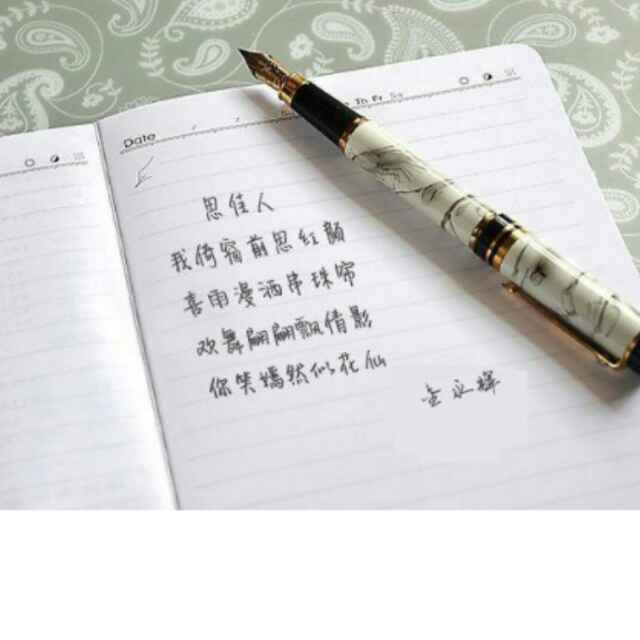 Date Th Fr Sa
思佳人
我倚窗前思红颜
喜雨漫洒串珠帘
欢舞翩翩飘倩影
你笑嫣然似花仙
金永辉